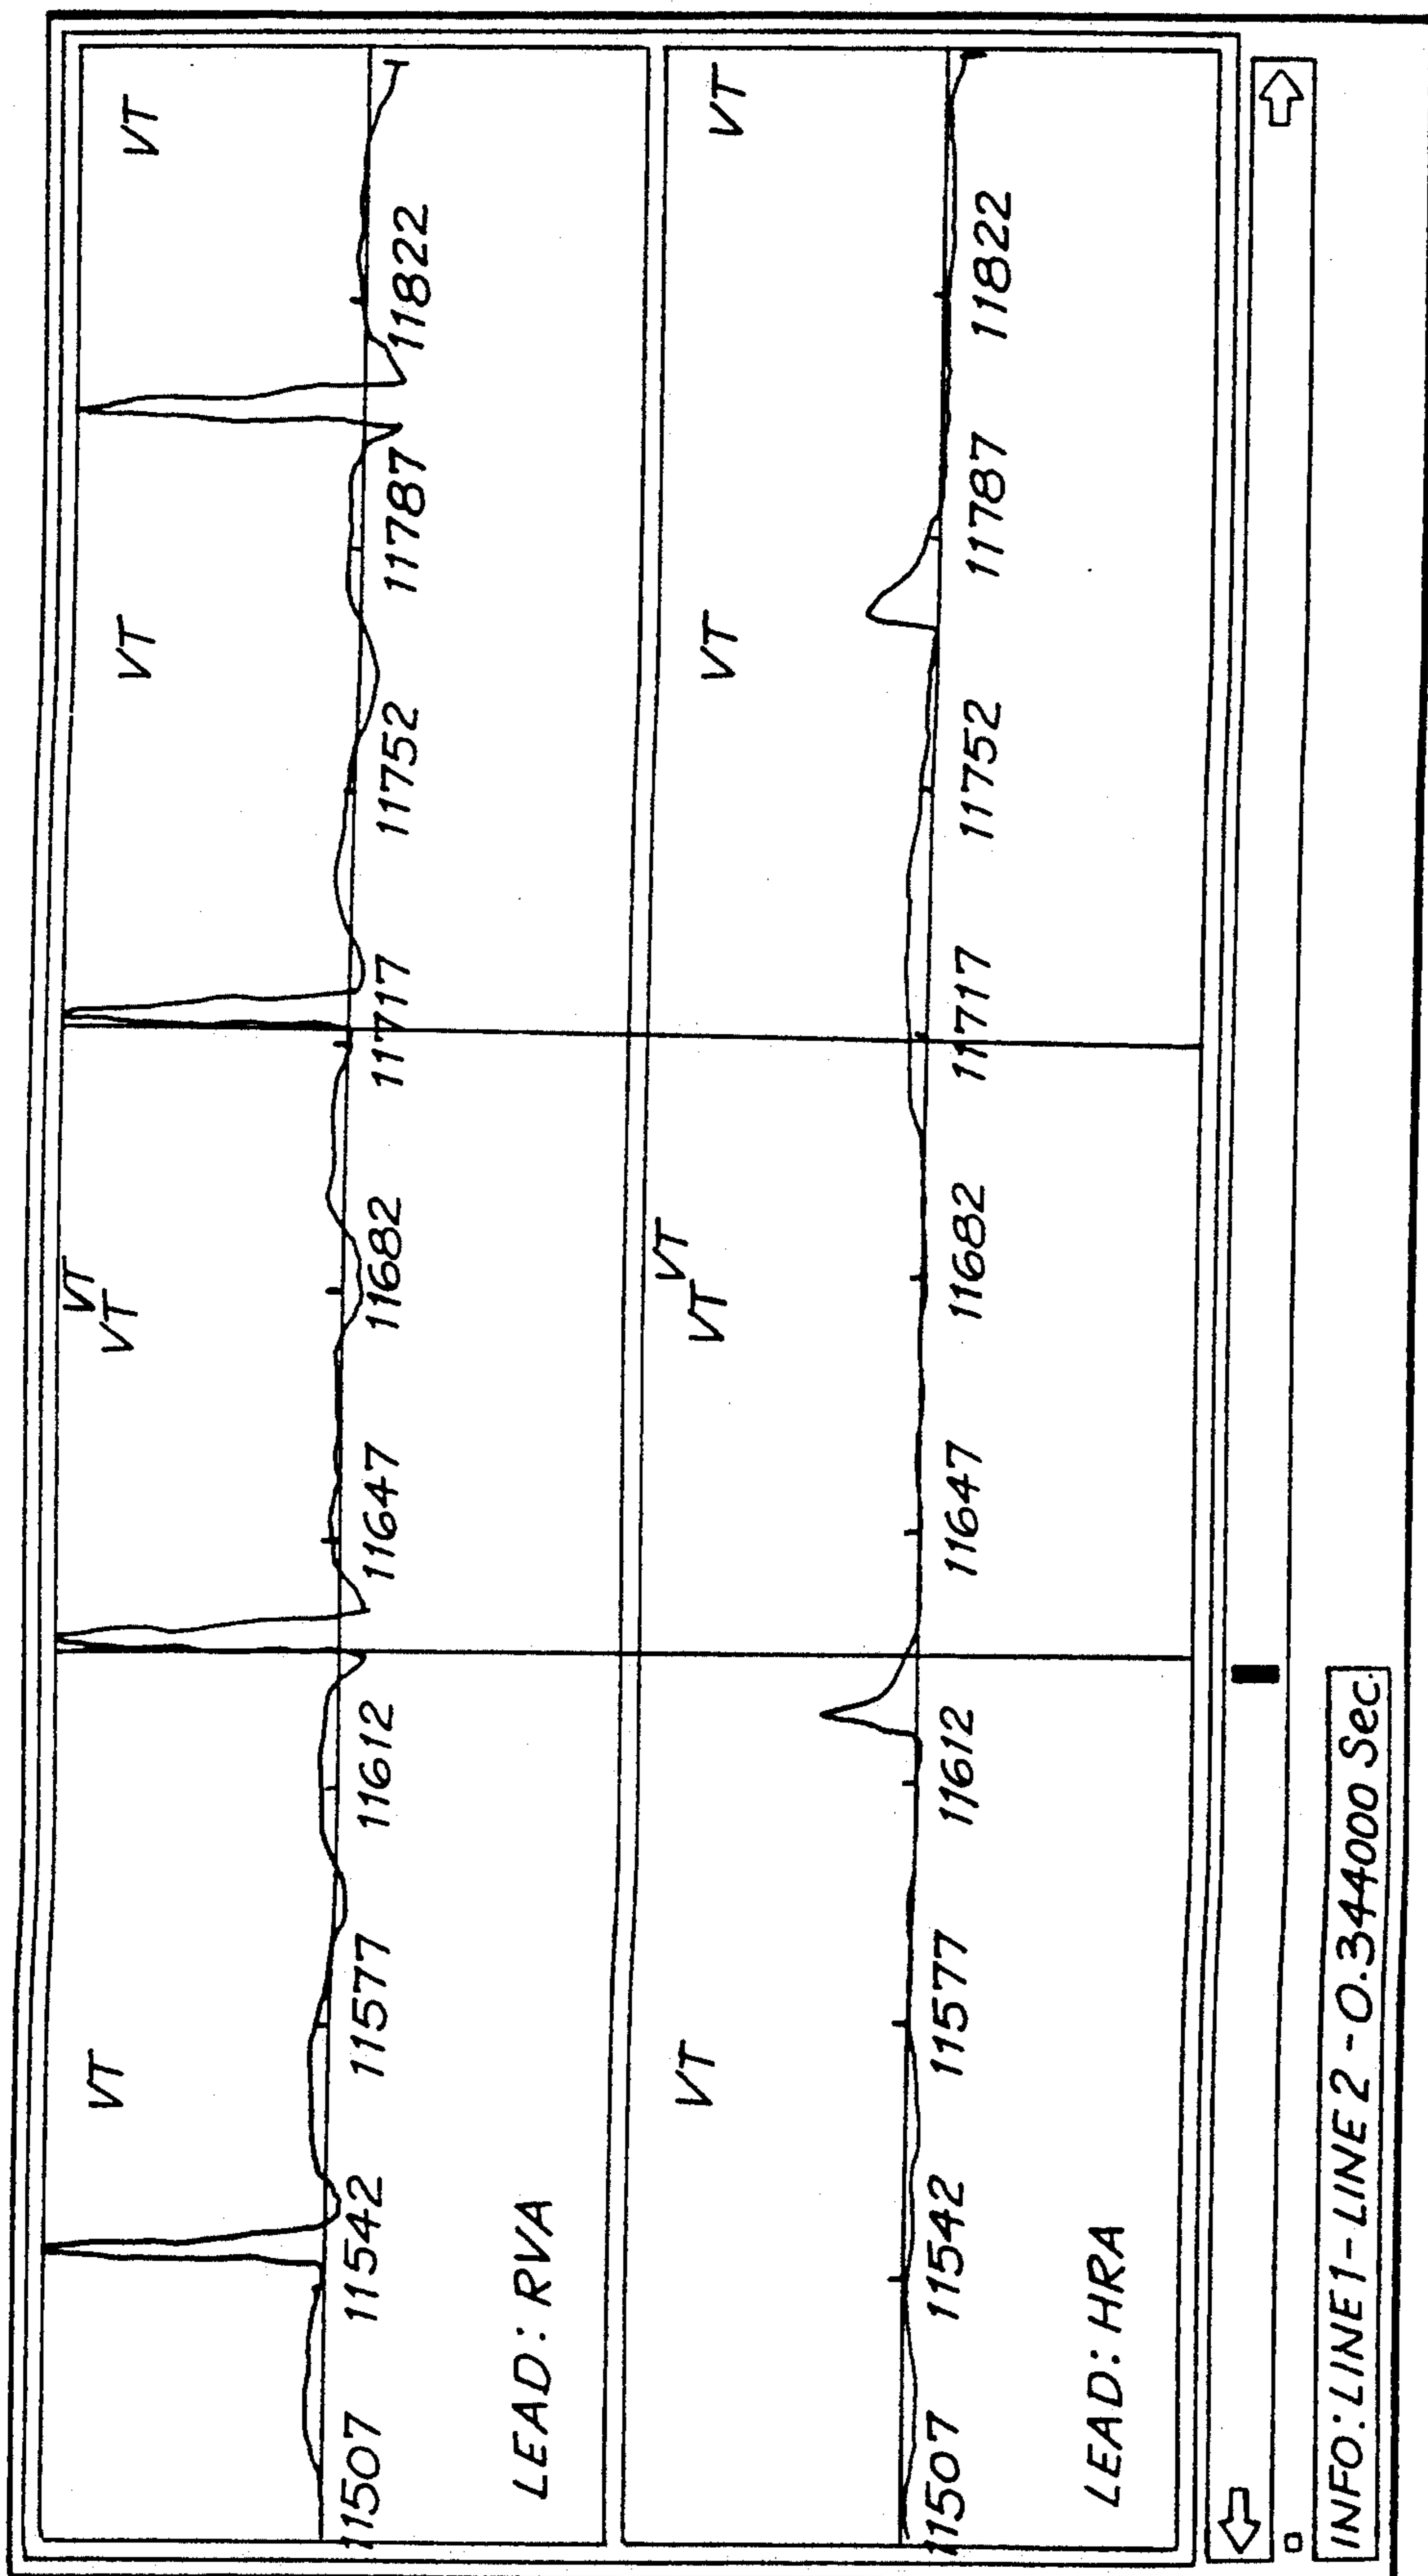 VT VT VT VT VT
11507 11542 11577 11612 11647 11682 11717 11752 11787 11822
LEAD: RVA
VT VT VT VT VT
11507 11542 11577 11612 11647 11682 11717 11752 11787 11822
LEAD: HRA
INFO: LINE 1 - LINE 2 - 0.344000 Sec.